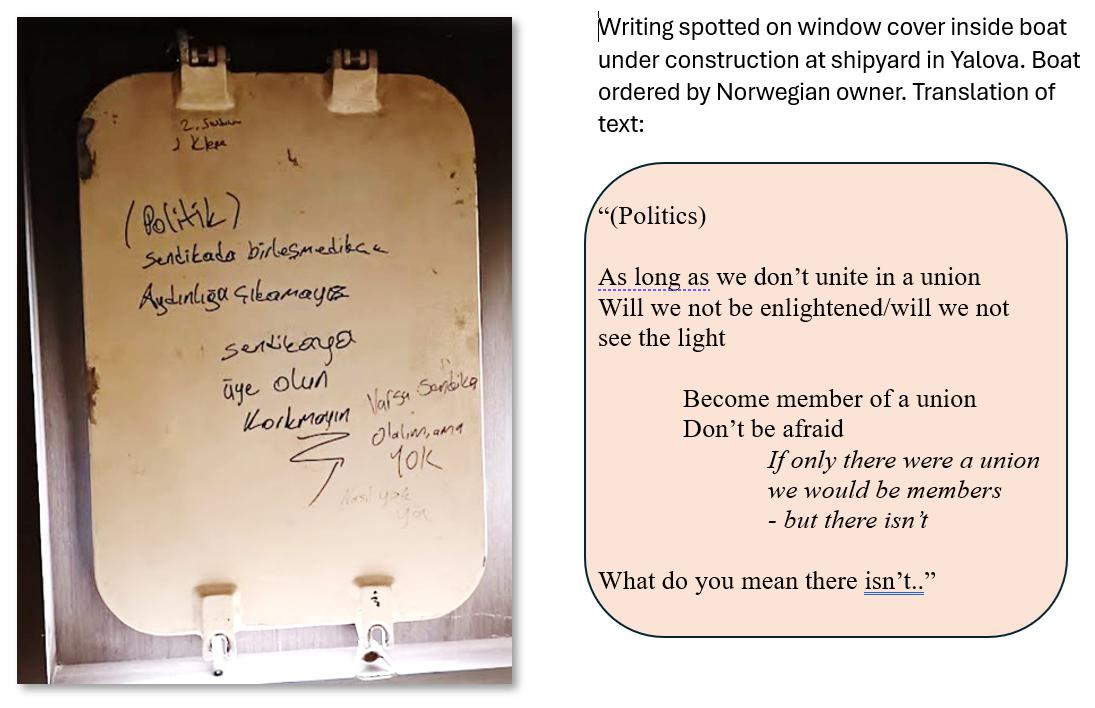 2.
(Politik)
sendikada birleşmedikçe
Aydınlığa Çıkamayız
sendikaya
üye olun
Korkmayın
Varsa Sendika
olalım, ama
YOK
Nasıl yok
ya
Writing spotted on window cover inside boat
under construction at shipyard in Yalova. Boat
ordered by Norwegian owner. Translation of
text:
“(Politics)
As long as we don’t unite in a union
Will we not be enlightened/will we not
see the light
Become member of a union
Don’t be afraid
If only there were a union
we would be members
- but there isn’t
What do you mean there isn’t..”